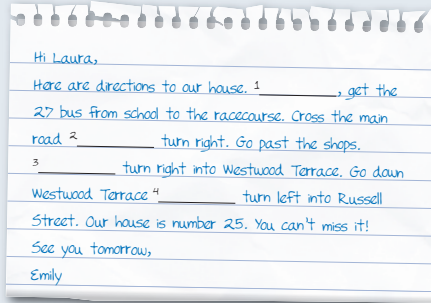 Hi Laura,
Here are directions to our house. 1__________, get the
27 bus from school to the racecourse. Cross the main
road 2__________ turn right. Go past the shops.
3__________ turn right into Westwood Terrace. Go down
Westwood Terrace 4__________ turn left into Russell
Street. Our house is number 25. You can't miss it!
See you tomorrow,
Emily